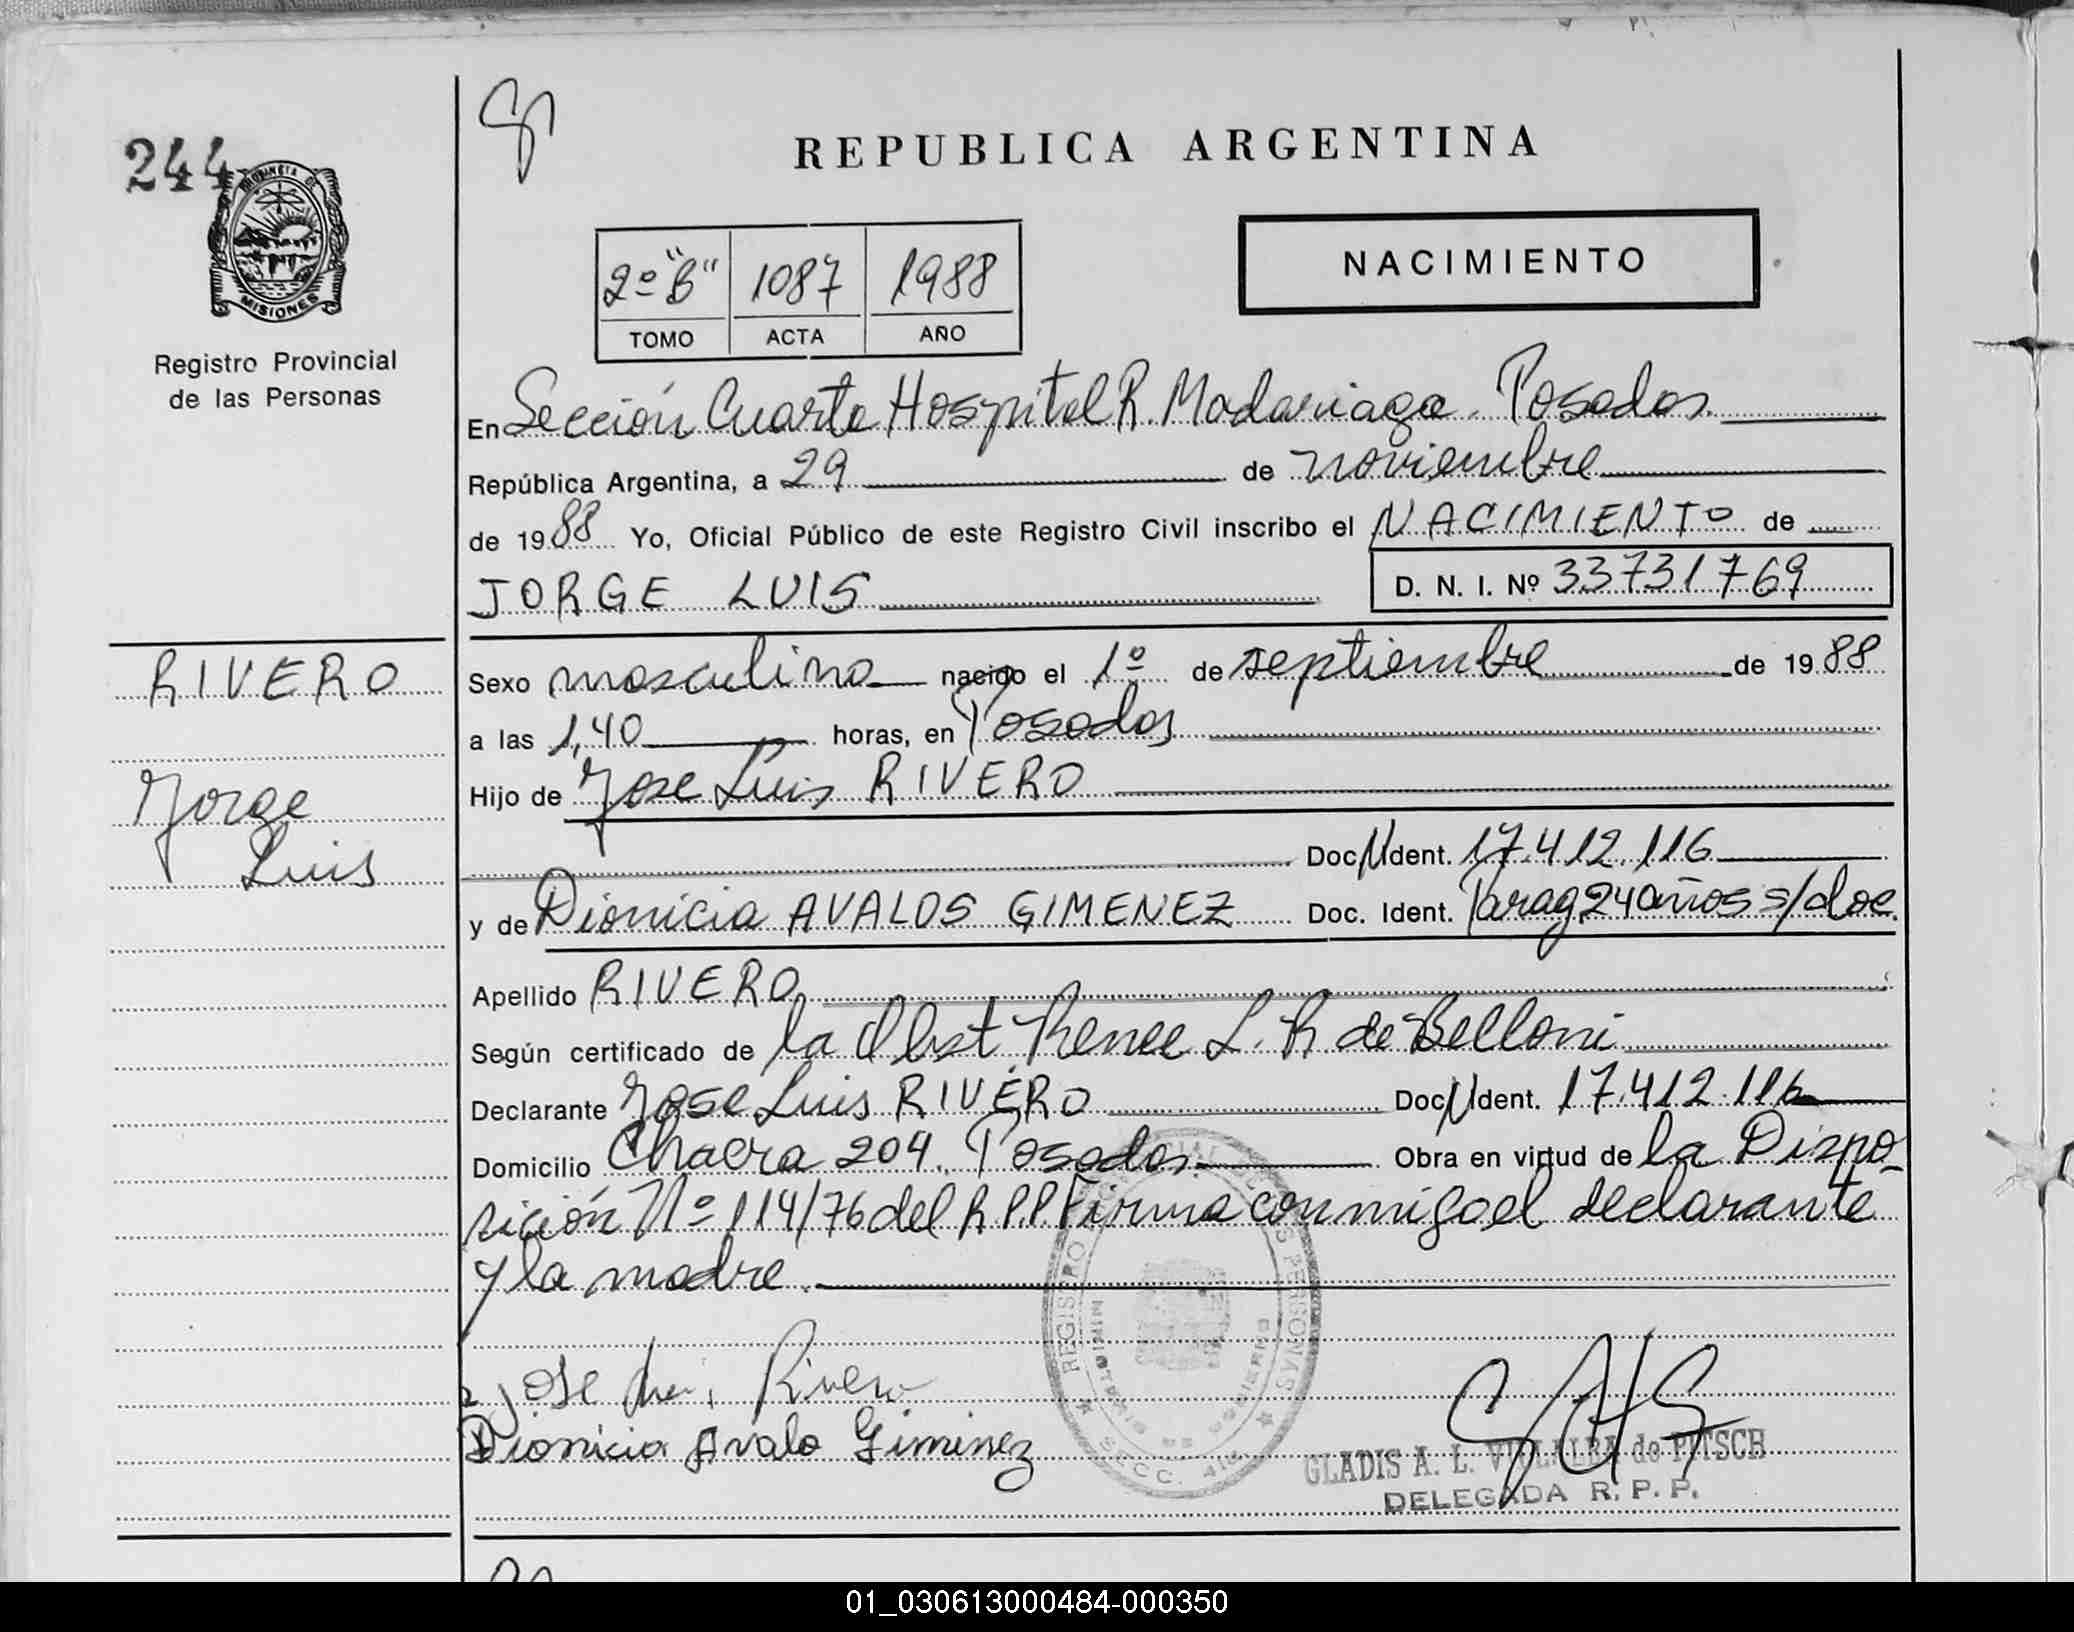 244
PROVINCIA DE
MISIONES
Registro Provincial
de las Personas
REPUBLICA ARGENTINA
2º "B" 1087 1988
TOMO ACTA AÑO
NACIMIENTO
En Sección Cuarta Hospital R. Madariaga. Posadas
República Argentina, a 29 de noviembre
de 1988 Yo, Oficial Público de este Registro Civil inscribo el NACIMIENTO de
JORGE LUIS D. N. I. Nº 33731769
RIVERO
Jorge
Luis
Sexo masculino nacido el 1º de septiembre de 1988
a las 1,40 horas, en Posadas
Hijo de Jose Luis RIVERO
Doc. N. Ident. 17.412.116
y de Dionicia AVALOS GIMENEZ Doc. Ident. Parag 24 años s/doc.
Apellido RIVERO
Según certificado de la Obst. Renee L. R de Belloni
Declarante Jose Luis RIVERO Doc. N. Ident. 17.412.116
Domicilio Chacra 204. Posadas. Obra en virtud de la Dispo-
sición Nº 114/76 del R.P.P. Firma conmigo el declarante
y la madre.
Jose Luis Rivero
Dionicia Avalo Gimenez
REGISTRO PROVINCIAL DE LAS PERSONAS
MINISTERIO DE GOBIERNO
SECC. 4ta
GLADIS A. L. VILLALBA de PITSCH
DELEGADA R. P. P.
01_030613000484-000350